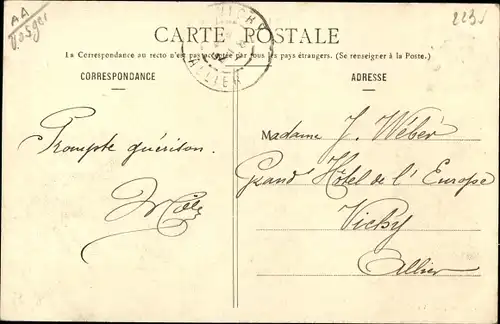 AA
Vosges
223
CARTE POSTALE
La Correspondance au recto n'est pas acceptée par tous les pays étrangers. (Se renseigner à la Poste.)
VICHY
ALLIER
CORRESPONDANCE
ADRESSE
Prompte guérison.
Madame J. Wéber
Grand Hôtel de l'Europe
Vichy
Allier